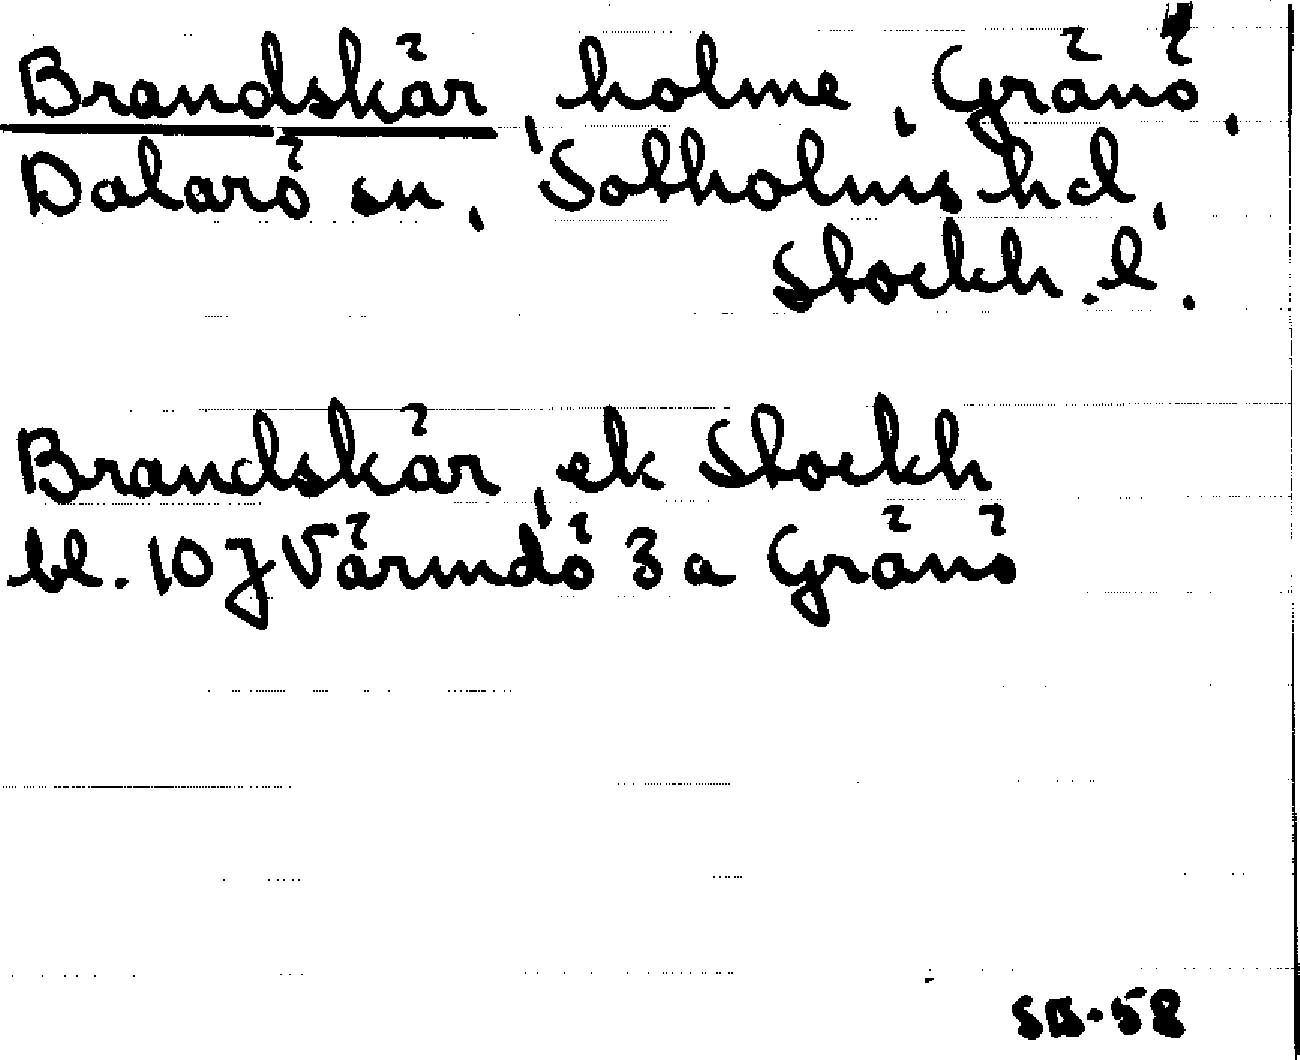 Brandskär, holme, Gränö,
Dalarö sn, Sotholms hd,
Stockh. l.
Brandskär, ek Stockh
bl. 10 J Värmdö 3 a Gränö
SB-58